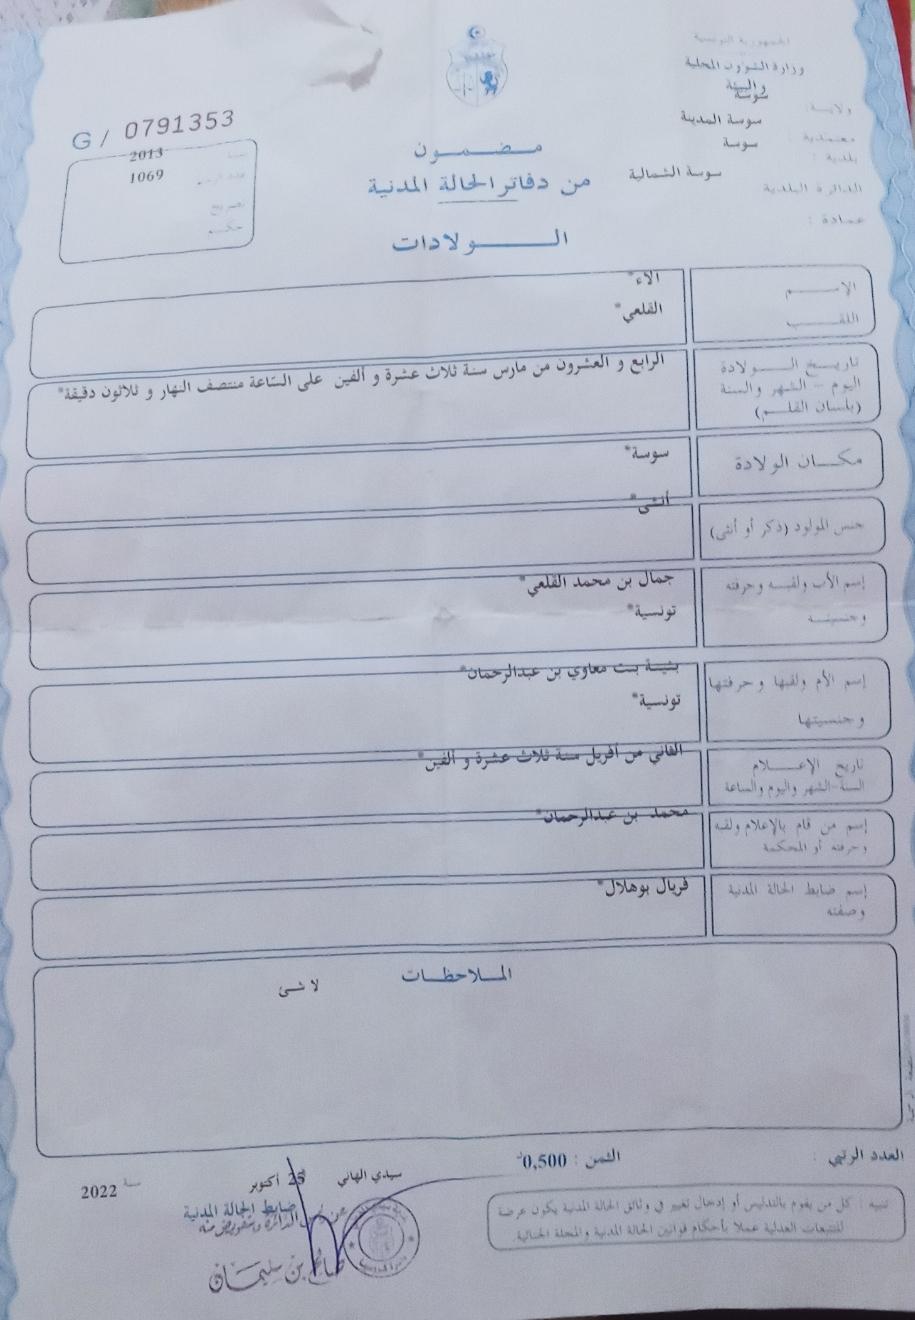 الجمهورية التونسية
وزارة الشؤون المحلية
والبيئة
ولاية : سوسة
معتمدية : سوسة المدينة
بلدية : سوسة
الدائرة البلدية سوسة الشمالية
عمادة :
G / 0791353
سنة 2013
1069
تصريح
حكم
مضمون
من دفاتر الحالة المدنية
الولادات
الإسم الاء*
اللقب القلعي*
تاريخ الولادة الرابع و العشرون من مارس سنة ثلاث عشرة و ألفين على الساعة منتصف النهار و ثلاثون دقيقة*
اليوم - الشهر والسنة
(بلسان القلم)
مكان الولادة سوسة*
جنس المولود (ذكر أو أنثى) أنثى*
إسم الأب ولقبه وحرفته جمال بن محمد القلعي*
وجنسيته تونسية*
إسم الأم ولقبها وحرفتها بنت معاوي بن عبدالرحمان*
وجنسيتها تونسية*
تاريخ الإعلام من أفريل سنة ثلاث عشرة و ألفين*
السنة-الشهر واليوم والساعة
إسم من قام بالإعلام ولقبه محمد بن عبدالرحمان*
وحرفته أو المحكمة
إسم ضابط الحالة المدنية فريال بوهلال*
وصفته
الملاحظات
لا شئ
العدد الرتبي :
الثمن : 0,500
سيدي الهاني أكتوبر سنة 2022
ضابط الحالة المدنية
صالح بن سليمان
تنبيه : كل من يقوم بالتدليس أو إدخال تغيير في وثائق الحالة المدنية يكون عرضة
للتتبعات العدلية عملا بأحكام قوانين الحالة المدنية والمجلة الجنائية.